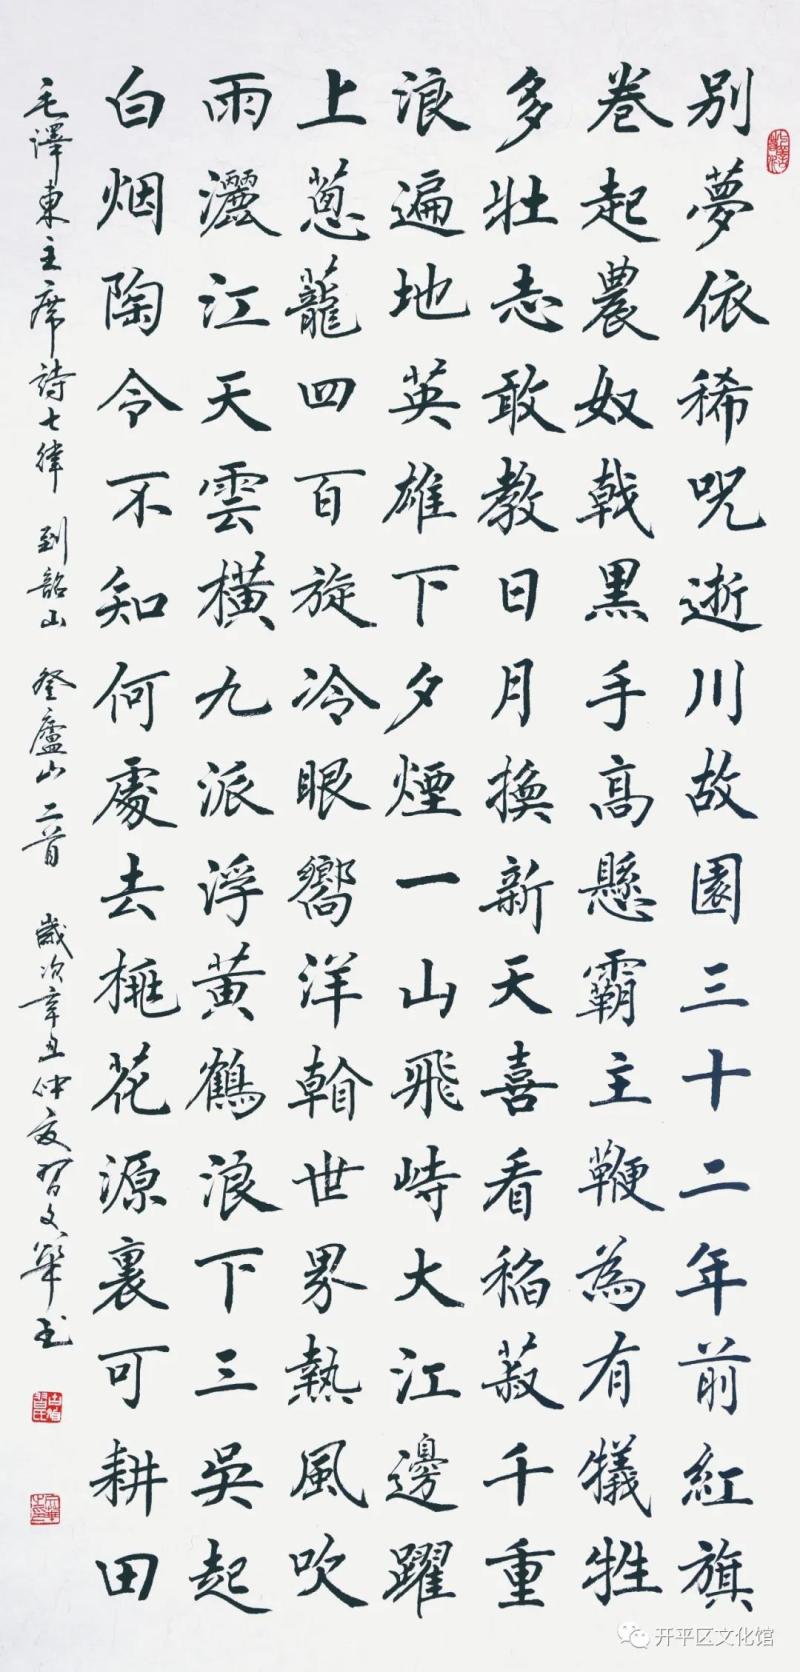 別夢依稀呪逝川故園三十二年前紅旗
卷起農奴戟黑手高懸霸主鞭為有犧牲
多壯志敢教日月換新天喜看稻菽千重
浪遍地英雄下夕煙一山飛峙大江邊躍
上蔥蘢四百旋冷眼嚮洋看世界熱風吹
雨灑江天雲橫九派浮黃鶴浪下三吳起
白烟陶令不知何處去桃花源裏可耕田
毛澤東主席詩七律 到韶山 登廬山二首 歲次辛丑仲夏習文華书
开平区文化馆